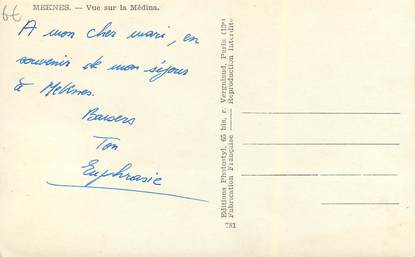 6€
MEKNES. — Vue sur la Médina.
A mon cher mari, en
souvenir de mon séjour
à Meknes.
Baisers
Ton
Euphrasie
Editions Photostyl, 65 bis, r. Vergniaud, Paris (13e)
Fabrication Française — Reproduction Interdite
781